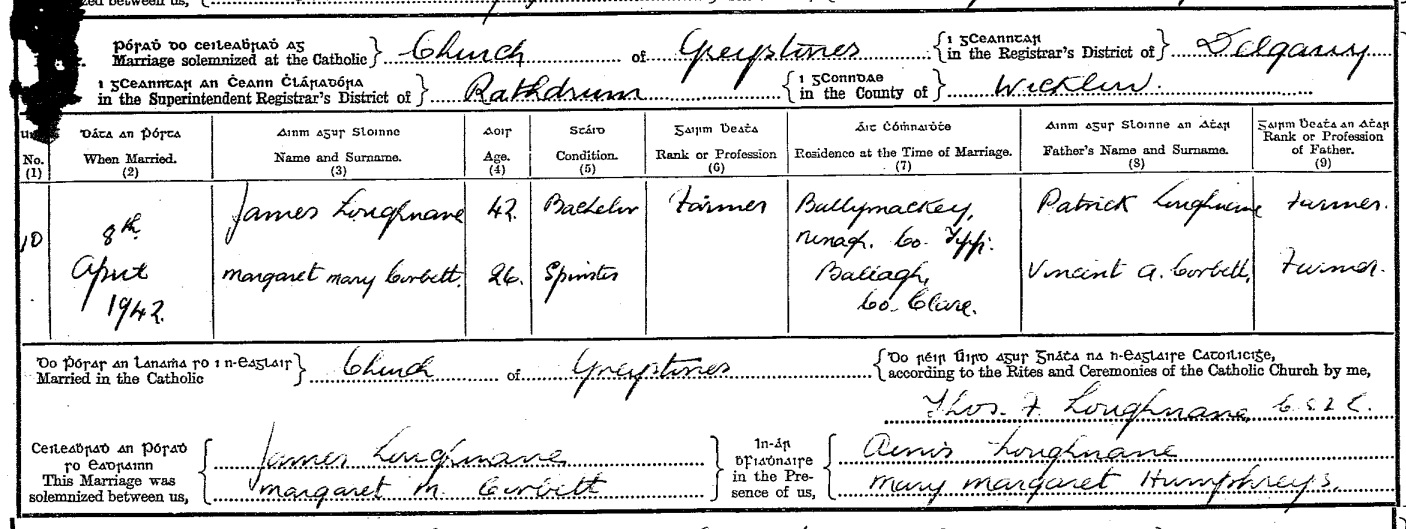 Pórað do ceileabrað ag
Marriage solemnized at the Catholic } Church of Greystones { i gCeanntar in the Registrar's District of } Delgany
i gCeanntar an Ċeann Ċláraḋóra
in the Superintendent Registrar's District of } Rathdrum { i gConndae in the County of } Wicklow.
No. (1) | Dáta an Pórta When Married. (2) | Ainm agus Sloinne Name and Surname. (3) | Aois Age. (4) | Stáid Condition. (5) | Gairm Beata Rank or Profession (6) | Áit Cómnaidte Residence at the Time of Marriage. (7) | Ainm agus Sloinne an Atar Father's Name and Surname. (8) | Gairm Beata an Atar Rank or Profession of Father. (9)
10 | 8th April 1942. | James Loughnane | 42. | Bachelor | Farmer | Ballymackey, Nenagh. Co. Tipp. | Patrick Loughnane | Farmer.
Margaret Mary Corbett. | 26. | Spinster | Co. Clare. | Vincent A. Corbett, | Farmer.
Do Pórad an Lanaṁa so i n-Eaglais
Married in the Catholic } Church of Greystones { Do réir Uird agus Gnáta na h-Eaglaise Catoilicige,
according to the Rites and Ceremonies of the Catholic Church by me,
Thos. F. Loughnane,
Ceileabrad an Pórad so eadrainn
This Marriage was solemnized between us, { James Loughnane
Margaret M. Corbett
in the Presence of us, { Loughnane
Mary Margaret Humphreys.